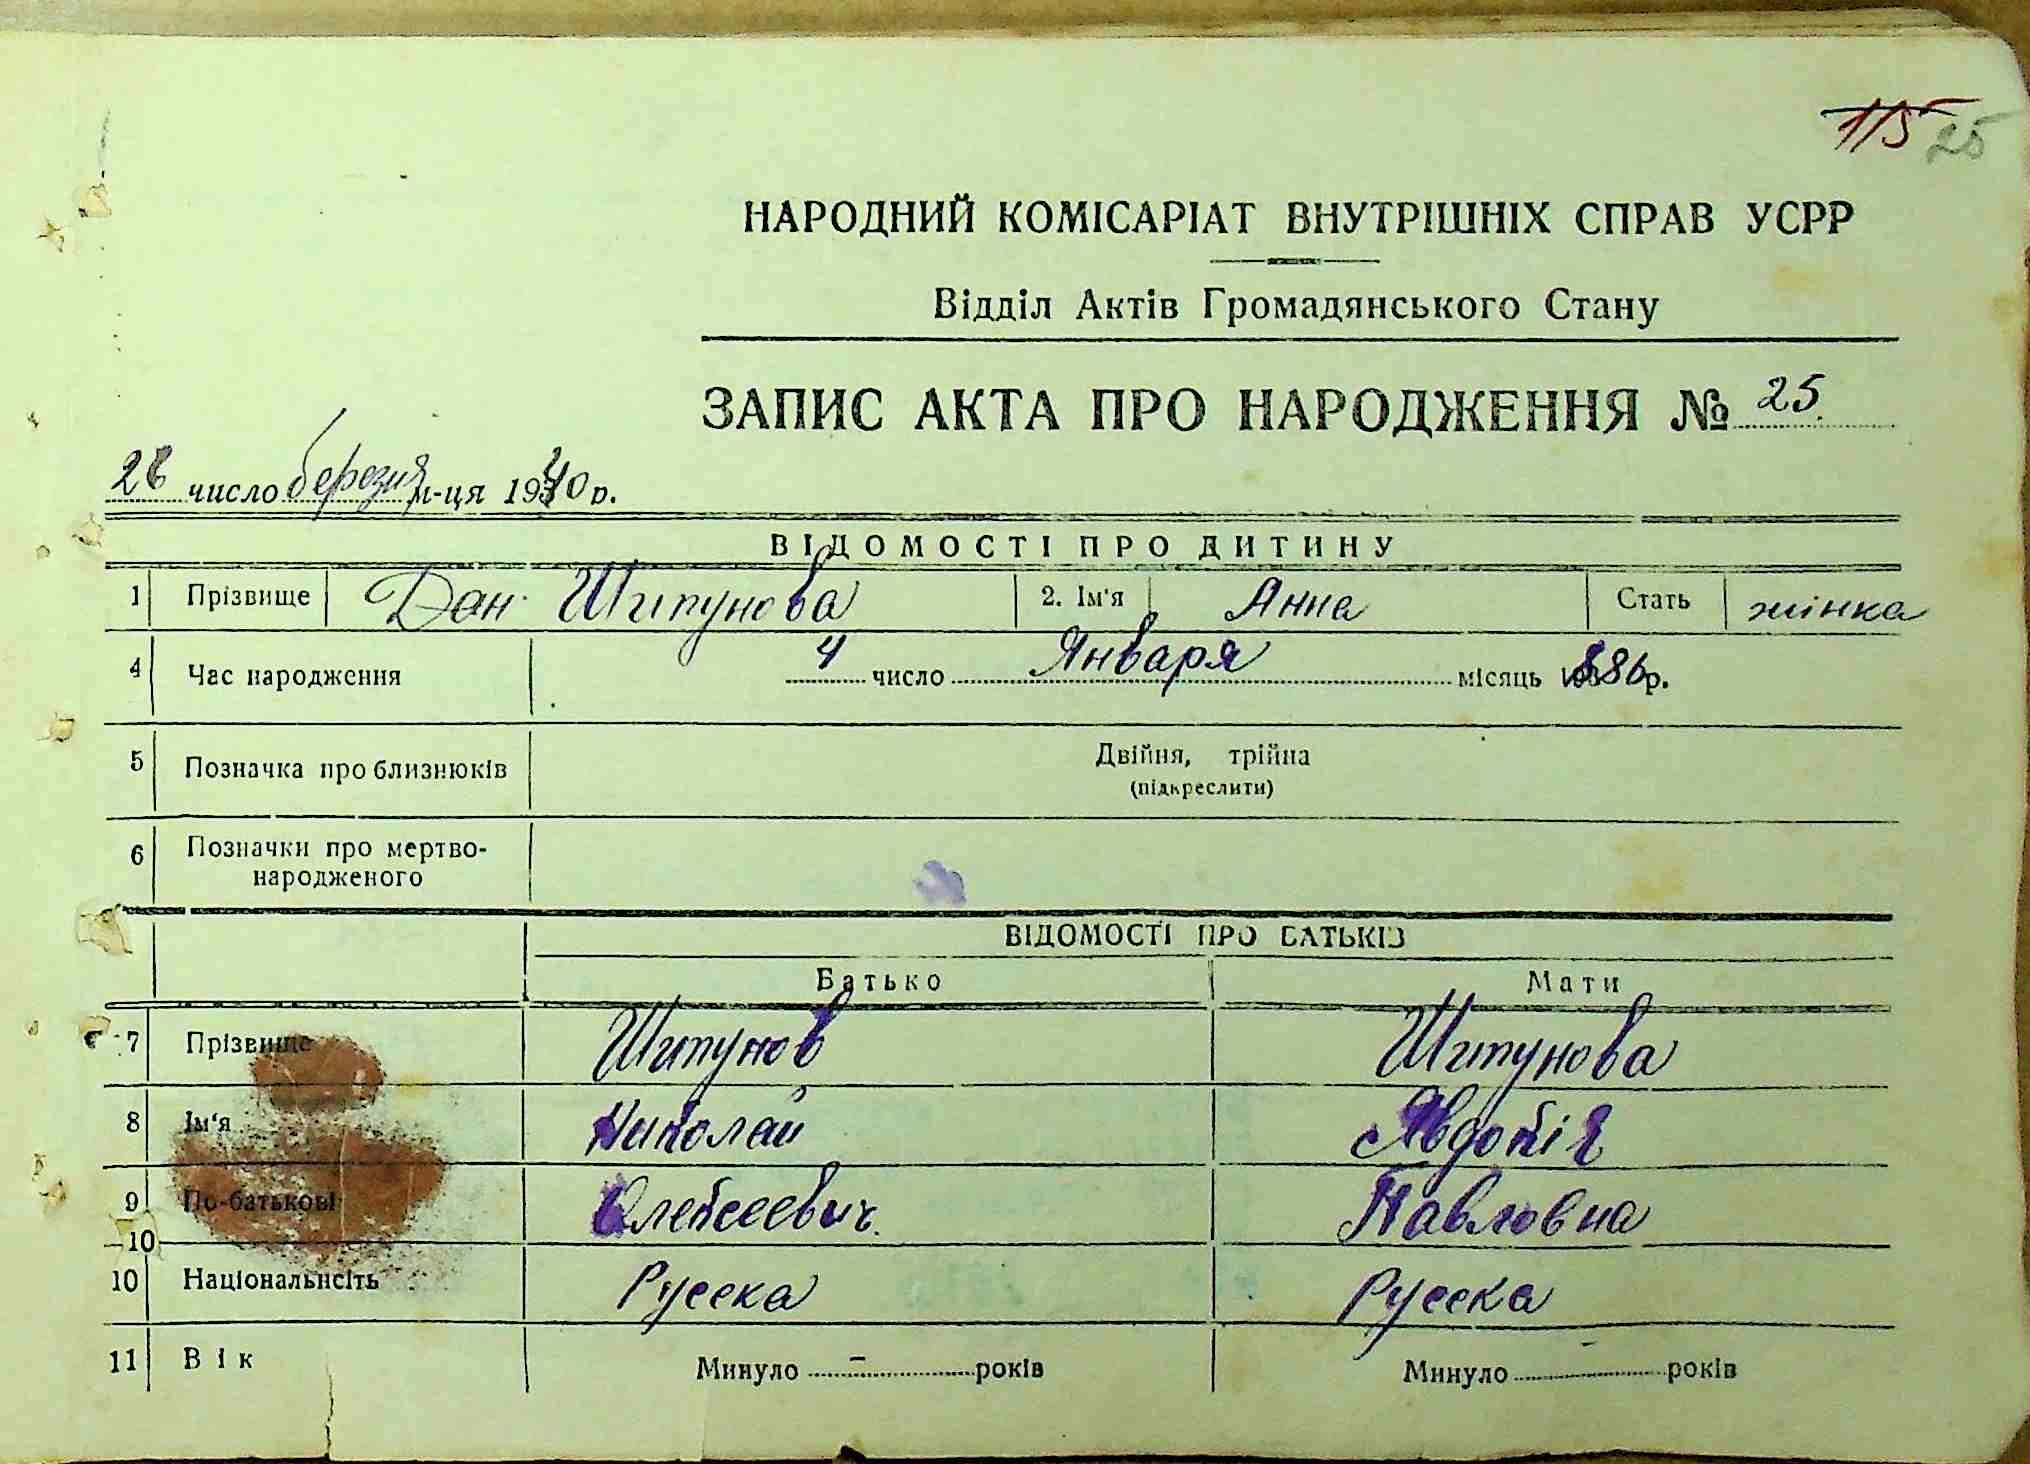 115 25
НАРОДНИЙ КОМІСАРІАТ ВНУТРІШНІХ СПРАВ УСРР
Відділ Актів Громадянського Стану
ЗАПИС АКТА ПРО НАРОДЖЕННЯ № 25.
26 число березня м-ця 1940 р.
ВІДОМОСТІ ПРО ДИТИНУ
1 Прізвище Дан. Шипунова 2. Ім'я Анна Стать жінка
4 Час народження 4 число Января місяць 1886 р.
5 Позначка про близнюків Двійня, трійна
(підкреслити)
6 Позначки про мертво-
народженого
ВІДОМОСТІ ПРО БАТЬКІВ
Батько Мати
7 Прізвище Шипунов Шипунова
8 Ім'я Николай Явдокія
9 По-батькові Олексеевич. Павловна
10
10 Національнсіть Русска Русска
11 Вік Минуло – років Минуло – років